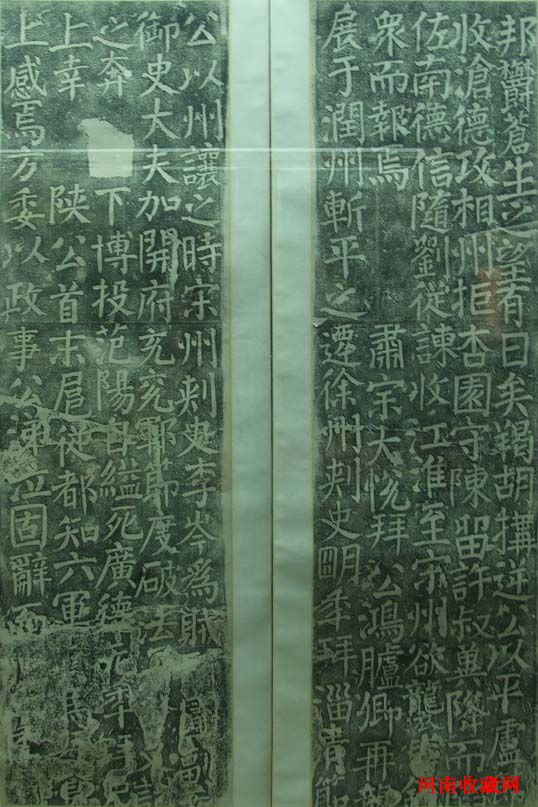 邦欝蒼生之望有日矣羯胡搆逆公以平盧
收滄德攻相州拒杏園守陳留許叔冀降而
佐南德信隨劉從諫收江淮至宋州欲襲
衆而報焉 肅宗大悅拜 公鴻臚卿再
展于潤州斬平之遷徐州刺史明年拜淄青節
公以州讓之時宋州刺史李岑爲賊 副
御史大夫加開府充兗鄆節度破法
之奔 下博投范陽自縊死廣德元年
上幸 陝公首末扈從都知六軍
上感焉方委以政事公涕泣固辭而
河南收藏网